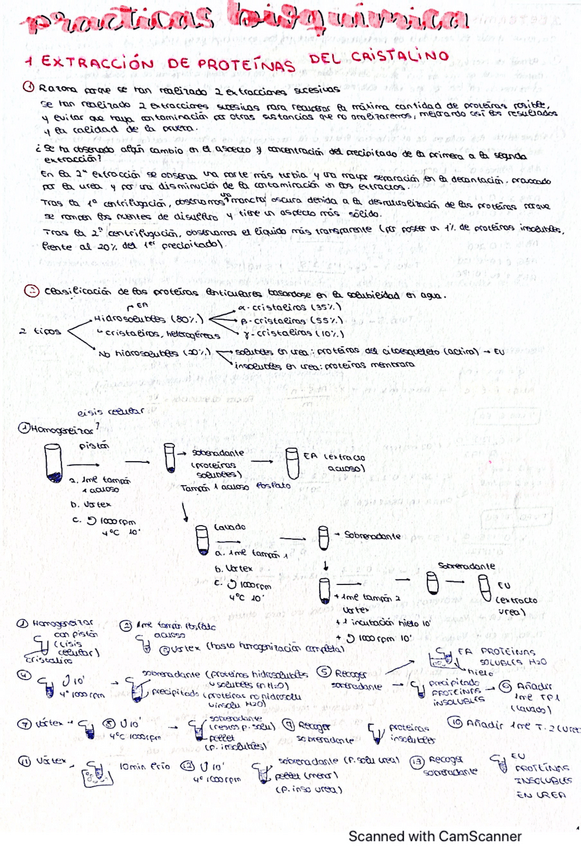 practicas bioquimica
1 EXTRACCIÓN DE PROTEÍNAS DEL CRISTALINO
① Razona porque se han realizado 2 extracciones sucesivas
Se han realizado 2 extracciones sucesivas para recuperar la máxima cantidad de proteínas posible,
y evitar que haya contaminación por otras sustancias que no analizaremos, mejorando así los resultados
y la calidad de la prueba.
¿Se ha observado algún cambio en el aspecto y concentración del precipitado de la primera a la segunda
extracción?
En la 2ª extracción se observa una parte más turbia y una mayor separación en la decantación, provocado
por la urea y por una disminución de la contaminación en los extractos.
Tras la 1ª centrifugación, observamos una mancha oscura debida a la desnaturalización de las proteínas porque
se rompen los puentes de disulfuro y tiene un aspecto más sólido.
Tras la 2ª centrifugación, observamos el líquido más transparente (por poseer un 1% de proteínas insolubles,
frente al 20% del 1er precipitado).
② Clasificación de las proteínas lenticulares basandose en la solubilidad en agua.
EA
2 tipos
Hidrosolubles (80%)
cristalinas, heterogéneas
α-cristalinas (35%)
β-cristalinas (55%)
γ-cristalinas (10%)
No hidrosolubles (20%)
solubles en urea: proteínas del citoesqueleto (actina) → EU
insolubles en urea: proteínas membrana
lisis celular
① Homogeneizar
pistón
a. 1ml tampón
1 acuoso
b. Vortex
c. 1000rpm
4ºC 10'
→ sobrenadante
(proteínas
solubles)
Tampón 1 acuoso fosfato
EA (extracto
acuoso)
Lavado
a. 1ml tampón 1
b. Vortex
c. 1000rpm
4ºC 10'
→ Sobrenadante
+ 1ml tampón 2
Vortex
+ incubación hielo 10'
+ 1000 rpm 10'
Sobrenadante
EU
(extracto
urea)
① Homogeneizar
con pistón
(lisis
celular)
cristalino
② 1ml tampón fosfato
acuoso
③ Vortex (hasta homogenización completa)
④ 10'
4º 1000rpm
sobrenadante (proteínas hidrosolubles
solubles en H2O)
precipitado (proteínas no hidrosolu
H2O)
⑤ Recoger
sobrenadante
EA PROTEÍNAS
SOLUBLES H2O
hielo
precipitado
PROTEÍNAS
INSOLUBLES
⑥ Añadir
1ml TP1
(lavado)
⑦ Vórtex
⑧ 10'
4ºC 1000rpm
sobrenadante
(menos p. solu)
pellet
(p. insolubles)
⑨ Recoger
sobrenadante
proteínas
insolubles
⑩ Añadir 1ml T.2
⑪ Vórtex
10min frío
⑫ 10'
4º 1000rpm
sobrenadante (p. solu urea)
pellet (menor)
(p. inso urea)
⑬ Recoger
sobrenadante
EU
PROTEÍNAS
INSOLUBLES
EN UREA
Scanned with CamScanner